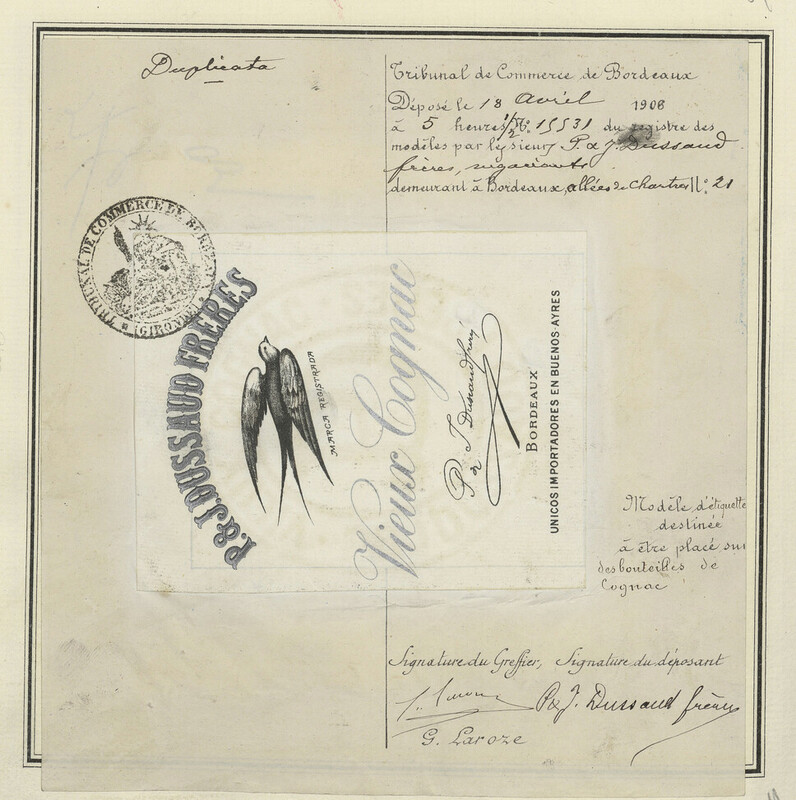 Duplicata
Tribunal de Commerce de Bordeaux
Déposé le 18 Avril 1908
à 5 heures 1/2 N°. 15531 du registre des
modèles par les sieurs P. & J. Dussaud
frères, négociants
demeurant à Bordeaux, allées de Chartres N°. 21
TRIBUNAL DE COMMERCE DE BORDEAUX
(GIRONDE)
P. & J. DUSSAUD FRÈRES
MARCA REGISTRADA
Vieux Cognac
P. & J. Dussaud frères
BORDEAUX
UNICOS IMPORTADORES EN BUENOS-AYRES
Modèle d'étiquette
destinée
à être placé sur
des bouteilles de
Cognac
Signature du Greffier, Signature du déposant
P. & J. Dussaud frères
G. Laroze